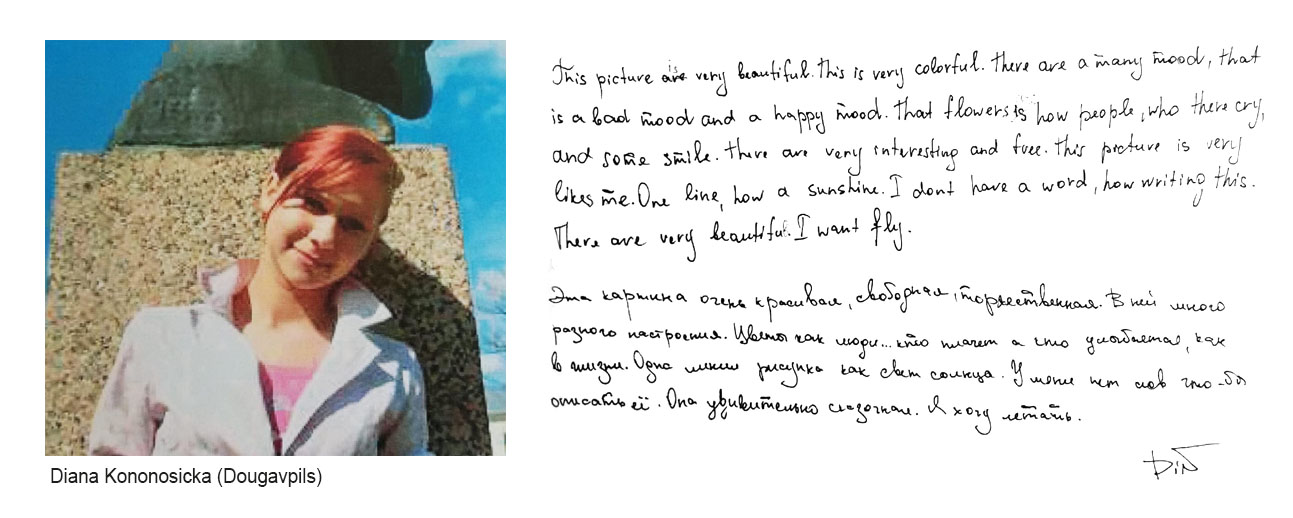 This picture is very beautiful. This is very colorful. There are a many mood, that
is a bad mood and a happy mood. That flowers is how people, who there cry,
and some smile. There are very interesting and free. This picture is very
likes me. One line, how a sunshine. I dont have a word, how writing this.
There are very beautiful. I want fly.
Эта картина очень красивая, свободная, торжественная. В ней много
разного настроения. Цветы как люди... кто плачет а кто улыбается, как
в жизни. Одна линия рисунка как свет солнца. У меня нет слов что-бы
описать её. Она удивительно сказочная. Я хочу летать.
Diana Kononosicka (Dougavpils)